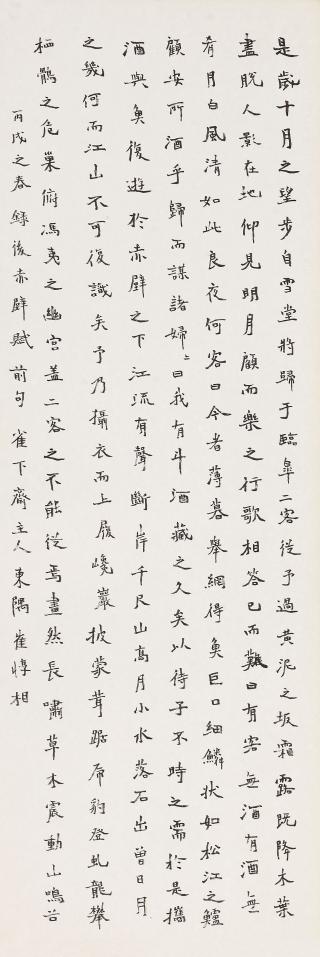 是歲十月之望步自雪堂將歸于臨皐二客從予過黃泥之坂霜露既降木葉
盡脫人影在地仰見明月顧而樂之行歌相答已而歎曰有客無酒有酒無
肴月白風清如此良夜何客曰今者薄暮舉網得魚巨口細鱗狀如松江之鱸
顧安所酒乎歸而謀諸婦〻曰我有斗酒藏之久矣以待子不時之需於是攜
酒與魚復遊於赤壁之下江流有聲斷岸千尺山高月小水落石出曾日月
之幾何而江山不可復識矣予乃攝衣而上履巉巖披蒙茸踞虎豹登虬龍攀
栖鶻之危巢俯馮夷之幽宮盖二客之不能從焉畫然長嘯草木震動山鳴谷
丙戌之春錄後赤壁賦前句雀下齋主人東隅崔惇相